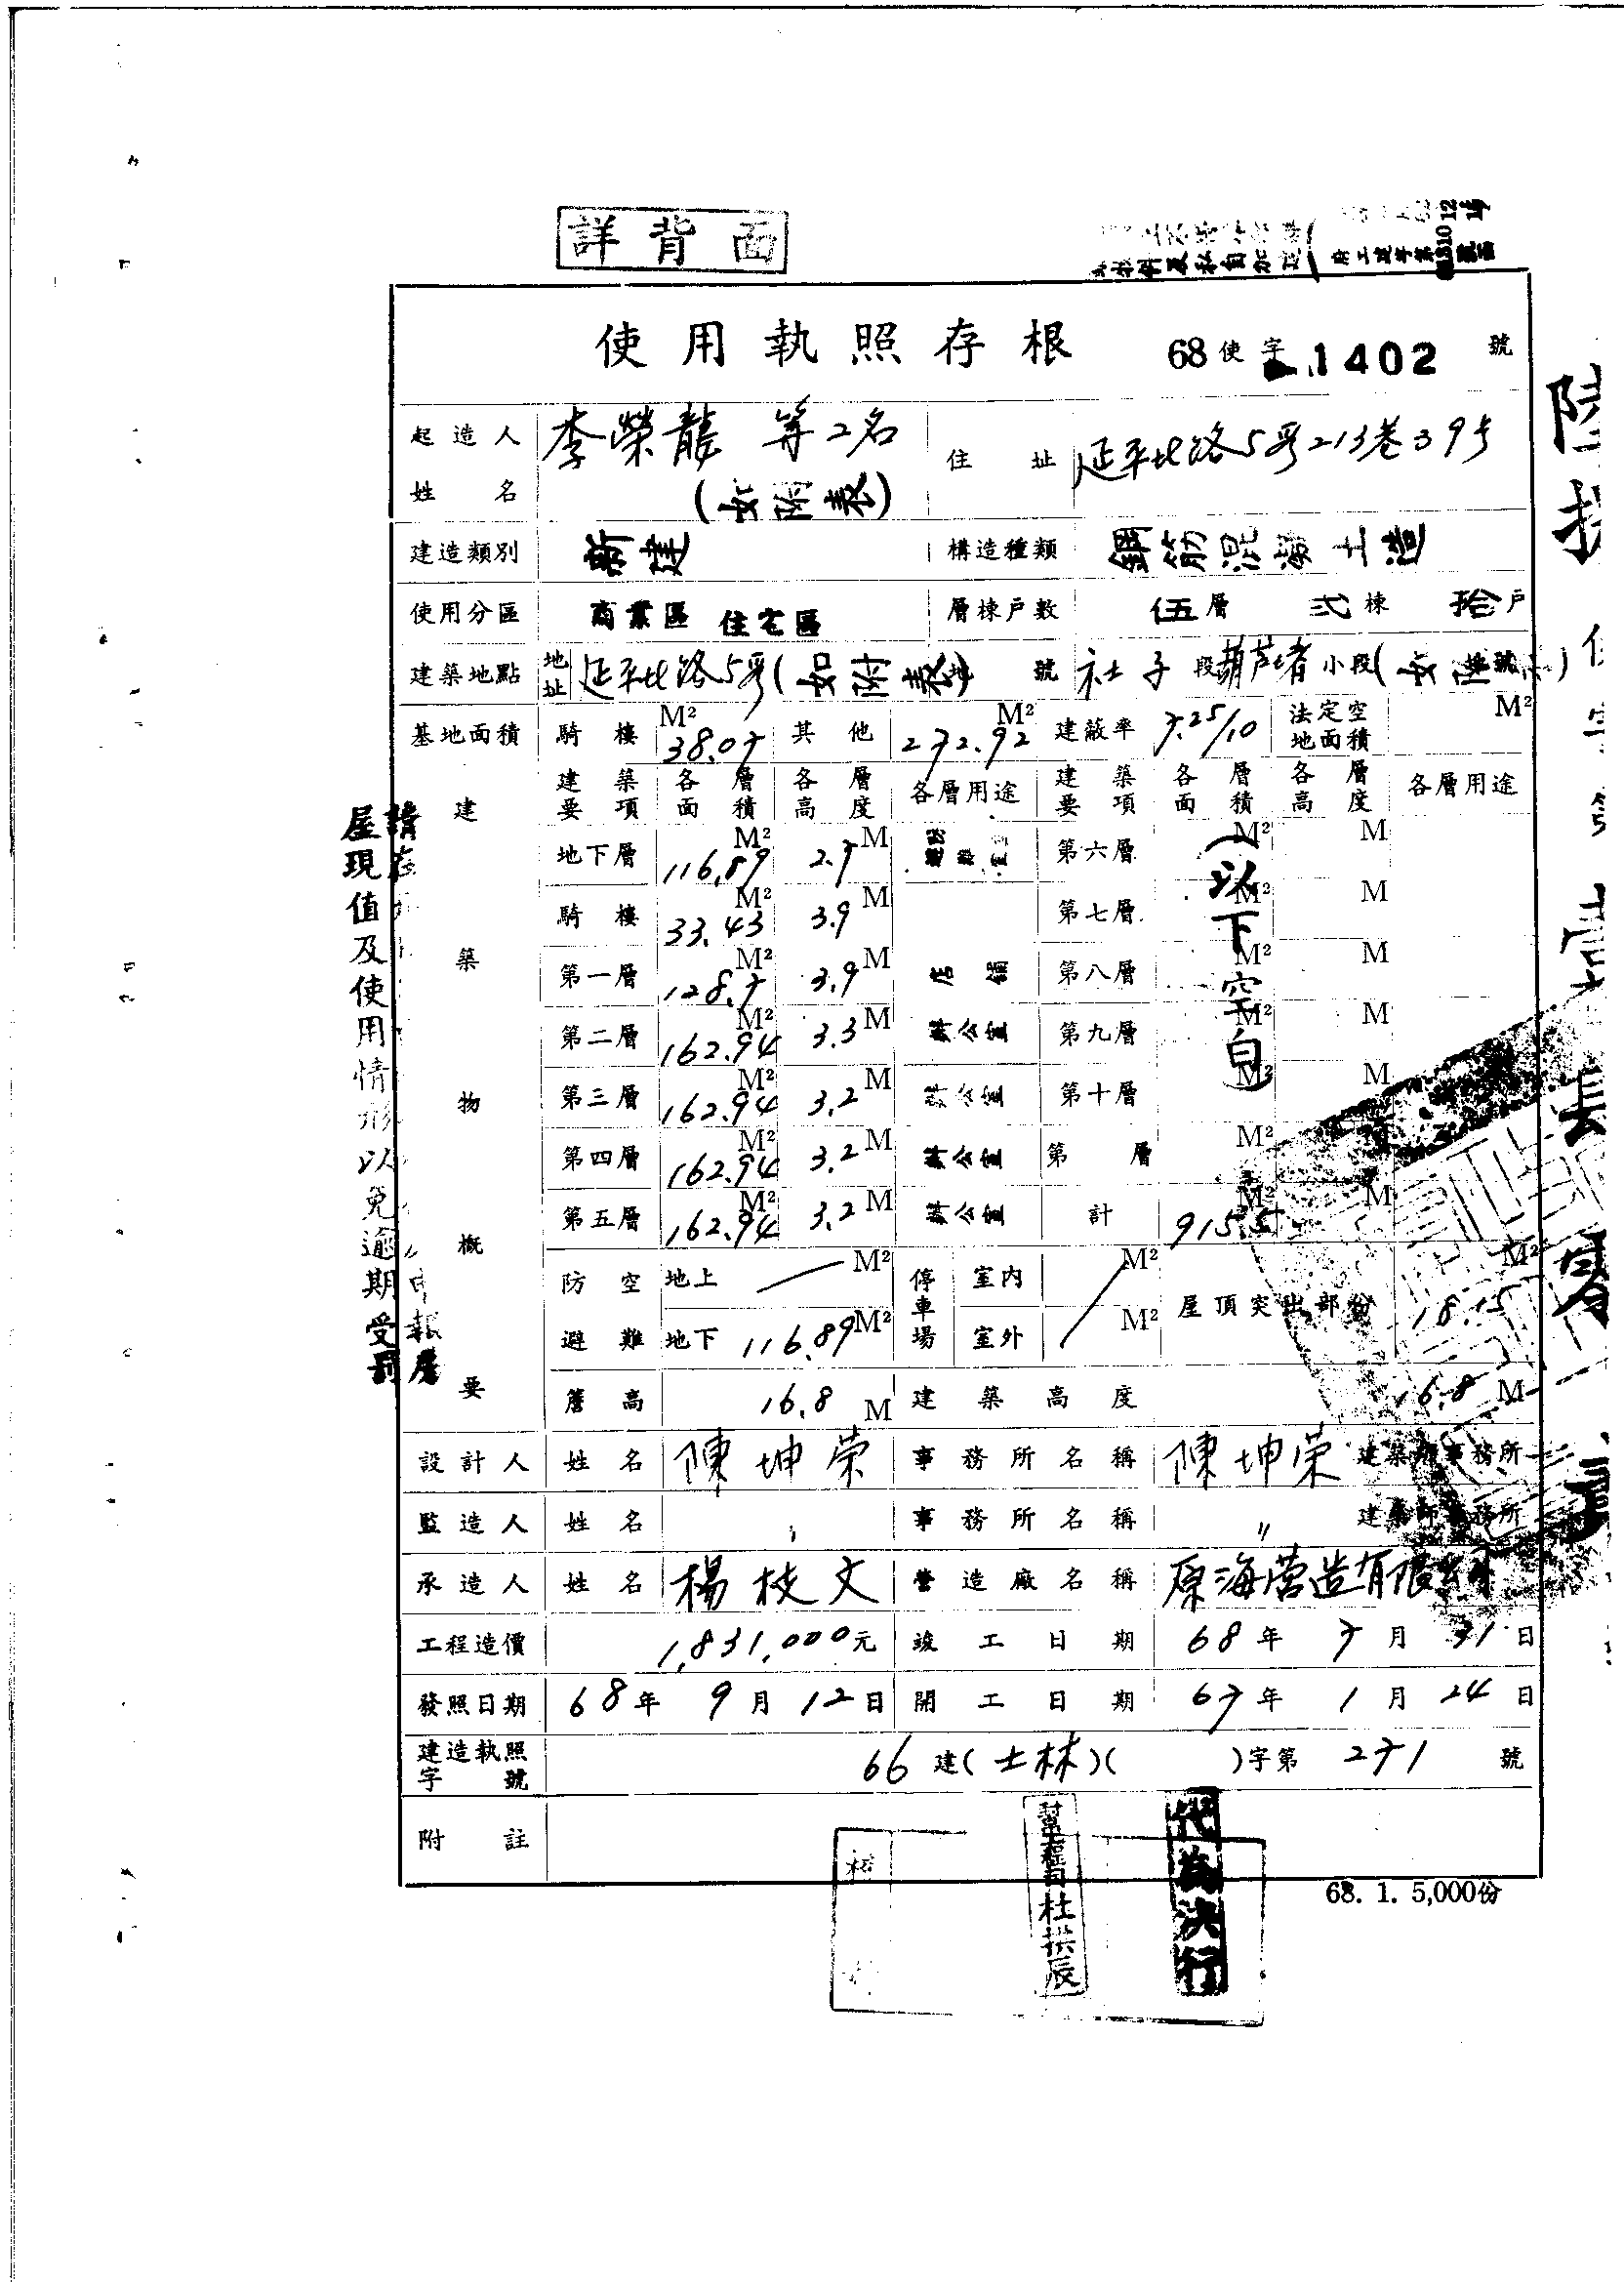 詳背面
使用執照存根 68使字 1402 號
起造人姓名 李榮龍 等2名 (如附表) 住址 延平北路5段213巷39号
建造類別 新建 構造種類 鋼筋混凝土造
使用分區 商業區 住宅區 層棟戶數 伍層 弍棟 拾戶
建築地點 地址 延平北路5段(如附表) 地號 社子段葫芦堵小段(如附表)
基地面積 騎樓 38.07 M² 其他 272.92 M² 建蔽率 7.25/10 法定空地面積 M²
建築物概要
建築要項 各層面積 各層高度 各層用途 建築要項 各層面積 各層高度 各層用途
地下層 116.89 M² 2.7 M 第六層 M² M
騎樓 33.43 M² 3.9 M 第七層 M² M
第一層 128.7 M² 3.9 M 店舖 第八層 M² M
第二層 162.94 M² 3.3 M 辦公室 第九層 M² M
第三層 162.94 M² 3.2 M 辦公室 第十層 M² M
第四層 162.94 M² 3.2 M 辦公室 第 層 M² M
第五層 162.94 M² 3.2 M 辦公室 計 915.5 M² M
(以下空白)
防空避難 地上 M² 地下 116.89 M² 停車場 室內 M² 室外 M² 屋頂突出部份 18.15 M²
簷高 16.8 M 建築高度 16.8 M
設計人 姓名 陳坤荣 事務所名稱 陳坤荣 建築師事務所
監造人 姓名 〃 事務所名稱 〃 建築師事務所
承造人 姓名 楊枝文 營造廠名稱 原海营造有限公司
工程造價 1,831,000元 竣工日期 68年7月31日
發照日期 68年9月12日 開工日期 67年1月24日
建造執照字號 66建(士林)( )字第 271 號
附註
屋現值及使用情形以免逾期受罰
68. 1. 5,000份
幫工程司杜拱辰
代為決行